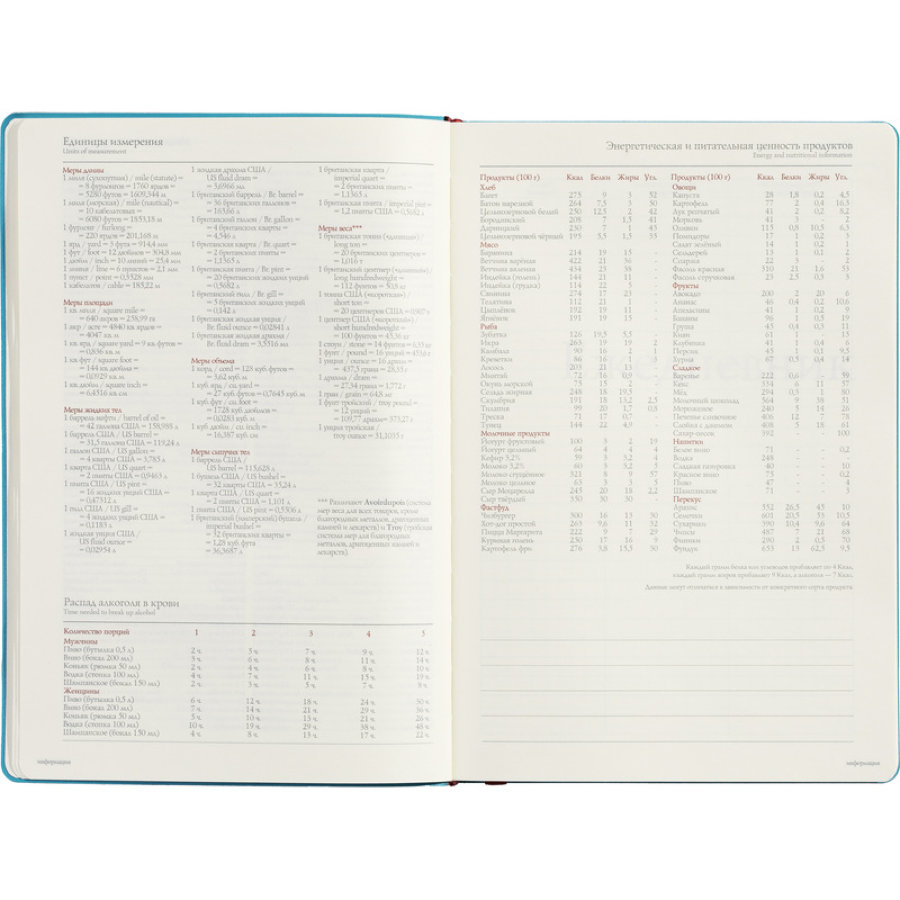 Единицы измерения
Units of measurement
Меры длины
1 миля (сухопутная) / mile (statute) =
= 8 фурлонгов = 1760 ярдов =
= 5280 футов = 1609,344 м
1 миля (морская) / mile (nautical) =
= 10 кабельтовых =
= 6080 футов = 1853,18 м
1 фурлонг / furlong =
= 220 ярдов = 201,168 м
1 ярд / yard = 3 фута = 914,4 мм
1 фут / foot = 12 дюймов = 304,8 мм
1 дюйм / inch = 10 линий = 25,4 мм
1 линия / line = 6 пунктов = 2,1 мм
1 пункт / point = 0,3528 мм
1 кабельтов / cable = 185,22 м
Меры площади
1 кв. миля / square mile =
= 640 акров = 258,99 га
1 акр / acre = 4840 кв. ярдов =
= 4047 кв. м
1 кв. ярд / square yard = 9 кв. футов =
= 0,836 кв. м
1 кв. фут / square foot =
= 144 кв. дюйма =
= 0,0929 кв. м
1 кв. дюйм / square inch =
= 6,4516 кв. см
Меры жидких тел
1 баррель нефти / barrel of oil =
= 42 галлона США = 158,988 л
1 баррель США / US barrel =
= 31,5 галлона США = 119,24 л
1 галлон США / US gallon =
= 4 кварты США = 3,785 л
1 кварта США / US quart =
= 2 пинты США = 0,9463 л
1 пинта США / US pint =
= 16 жидких унций США =
= 0,47312 л
1 гилл США / US gill =
= 4 жидких унции США =
= 0,1183 л
1 жидкая унция США /
US fluid ounce =
= 0,02954 л
1 жидкая драхма США /
US fluid dram =
= 3,6966 мл
1 британский баррель / Br. barrel =
= 36 британских галлонов =
= 163,66 л
1 британский галлон / Br. gallon =
= 4 британских кварты =
= 4,546 л
1 британская кварта / Br. quart =
= 2 британских пинты =
= 1,1365 л
1 британская пинта / Br. pint =
= 20 британских жидких унций
= 0,5682 л
1 британский гилл / Br. gill =
= 5 британских жидких унций
= 0,142 л
1 британская жидкая унция /
Br. fluid ounce = 0,02841 л
1 британская жидкая драхма /
Br. fluid dram = 3,5516 мл
Меры объема
1 корд / cord = 128 куб. футов =
= 3,62 куб. м
1 куб. ярд / cu. yard =
= 27 куб. футов = 0,7645 куб. м
1 куб. фут / cu. foot =
= 1728 куб. дюймов =
= 0,0283 куб. м
1 куб. дюйм / cu. inch =
= 16,387 куб. см
Меры сыпучих тел
1 баррель США /
US barrel = 115,628 л
1 бушель США / US bushel =
= 32 кварты США = 35,24 л
1 кварта США / US quart =
= 2 пинты США = 1,101 л
1 пинта США / US pint = 0,5506 л
1 британский (имперский) бушель /
imperial bushel =
= 32 британских кварты =
= 1,28 куб. фута
= 36,3687 л
1 британская кварта /
imperial quart =
= 2 британских пинты =
= 1,1365 л
1 британская пинта / imperial pint =
= 1,2 пинты США = 0,5682 л
Меры веса***
1 британская тонна («длинная») /
long ton =
= 20 британских центнеров =
= 1,016 т
1 британский центнер («длинный») /
long hundredweight =
= 112 фунтов = 50,8 кг
1 тонна США («короткая») /
short ton =
= 20 центнеров США = 0,907 т
1 центнер США («короткий») /
short hundredweight =
= 100 фунтов = 45,36 кг
1 стоун / stone = 14 фунтов = 6,35 кг
1 фунт / pound = 16 унций = 453,6 г
1 унция / ounce = 16 драхм =
= 437,5 грана = 28,35 г
1 драхма / dram =
= 27,34 грана = 1,772 г
1 гран / grain = 64,8 мг
1 фунт тройский / troy pound =
= 12 унций =
= 109,77 драхм = 373,27 г
1 унция тройская /
troy ounce = 31,1035 г
*** Различают Avoirdupois (система
мер веса для всех товаров, кроме
благородных металлов, драгоценных
камней и лекарств) и Troy (тройская
система мер для благородных
металлов, драгоценных камней и
лекарств).
Распад алкоголя в крови
Time needed to break up alcohol
Количество порций 1 2 3 4 5
Мужчины
Пиво (бутылка 0,5 л) 2 ч. 5 ч. 7 ч. 9 ч. 12 ч.
Вино (бокал 200 мл) 3 ч. 6 ч. 8 ч. 11 ч. 14 ч.
Коньяк (рюмка 50 мл) 2 ч. 4 ч. 6 ч. 8 ч. 10 ч.
Водка (стопка 100 мл) 4 ч. 7 ч. 11 ч. 15 ч. 19 ч.
Шампанское (бокал 150 мл) 2 ч. 3 ч. 5 ч. 7 ч. 8 ч.
Женщины
Пиво (бутылка 0,5 л) 6 ч. 12 ч. 18 ч. 24 ч. 30 ч.
Вино (бокал 200 мл) 7 ч. 14 ч. 21 ч. 29 ч. 36 ч.
Коньяк (рюмка 50 мл) 5 ч. 10 ч. 15 ч. 21 ч. 26 ч.
Водка (стопка 100 мл) 10 ч. 19 ч. 29 ч. 38 ч. 48 ч.
Шампанское (бокал 150 мл) 4 ч. 8 ч. 13 ч. 17 ч. 22 ч.
информация
Энергетическая и питательная ценность продуктов
Energy and nutritional information
Продукты (100 г) Ккал Белки Жиры Угл.
Хлеб
Багет 275 9 3 52
Батон нарезной 264 7,5 3 50
Цельнозерновой белый 250 12,5 2 42
Бородинский 208 7 1,5 41
Дарницкий 230 7 1 45
Цельнозерновой чёрный 195 5,5 1,5 35
Мясо
Баранина 214 19 15 -
Ветчина варёная 422 21 36 -
Ветчина валеная 434 23 38 -
Индейка (голень) 144 21 11 -
Индейка (грудка) 114 22 3 -
Свинина 274 17 23 -
Телятина 112 21 1 -
Цыплёнок 192 19 11 -
Ягнёнок 191 19 15 -
Рыба
Зубатка 126 19,5 5,5 -
Икра 263 19 19 2
Камбала 90 16 2 1
Креветки 86 16 1 3
Лосось 203 21 13 -
Минтай 72 16 0,9 -
Окунь морской 75 15 2 -
Сельдь жирная 248 18 19,5 -
Скумбрия 191 18 13,2 2,5
Тилапия 99 20 1,7 0,8
Треска 71 17 0,7 -
Тунец 144 22 4,9 -
Молочные продукты
Йогурт фруктовый 100 3 2 19
Йогурт цельный 64 4 4 4
Кефир 3,2% 59 3 3,2 4
Молоко 3,2% 60 3 3,2 5
Молоко сгущённое 321 8 9 57
Молоко цельное 63 3 3 5
Сыр Моцарелла 245 20 18 2,2
Сыр твёрдый 350 30 30 -
Фастфуд
Чизбургер 300 16 13 30
Хот-дог простой 263 9,6 11 32
Пицца Маргарита 222 9 7 29
Куриная голень 230 17 16 9
Картофель фри 276 3,8 15,5 30
Продукты (100 г) Ккал Белки Жиры Угл.
Овощи
Капуста 28 1,8 0,2 4,5
Картофель 77 2 0,4 16,3
Лук репчатый 41 2 0,2 8,2
Морковь 41 3 - 2
Оливки 115 0,8 10,5 6,3
Помидоры 17 1 0,2 3
Салат зелёный 14 1 0,2 1
Сельдерей 13 1 0,1 2
Спаржа 22 3 - 2
Фасоль красная 310 21 1,6 53
Фасоль стручковая 23 2,5 0,3 3
Фрукты
Авокадо 200 2 20 6
Ананас 46 0,4 0,2 10,6
Апельсины 41 1 0,2 9
Бананы 96 1 0,5 19
Груша 45 0,4 0,3 11
Киви 61 1 - 15
Клубника 41 1 0,4 6
Персик 45 1 0,1 9,5
Хурма 67 0,5 0,4 14
Сладкое
Варенье 222 0,6 - 59
Кекс 334 6 11 57
Мёд 294 0,5 1 80
Молочный шоколад 564 9 38 51
Мороженое 240 5 14 26
Печенье сливочное 406 12 7 78
Слойка с джемом 408 5 18 61
Сахар-песок 392 - - 100
Напитки
Белое вино 71 - - 0,2
Водка 248 - - -
Сладкая газировка 40 - - 10
Красное вино 75 - - 0,2
Пиво 47 - - 4
Шампанское 71 - - 5
Перекус
Арахис 552 26,5 45 10
Семечки 601 20,5 53 10,5
Сухарики 390 10,4 9,6 64
Чипсы 487 7 21 68
Финики 290 2 0,5 70
Фундук 653 13 62,5 9,5
Каждый грамм белка или углеводов прибавляет по 4 Ккал,
каждый грамм жиров прибавляет 9 Ккал, а алкоголя — 7 Ккал.
Данные могут отличаться в зависимости от конкретного сорта продукта
информация